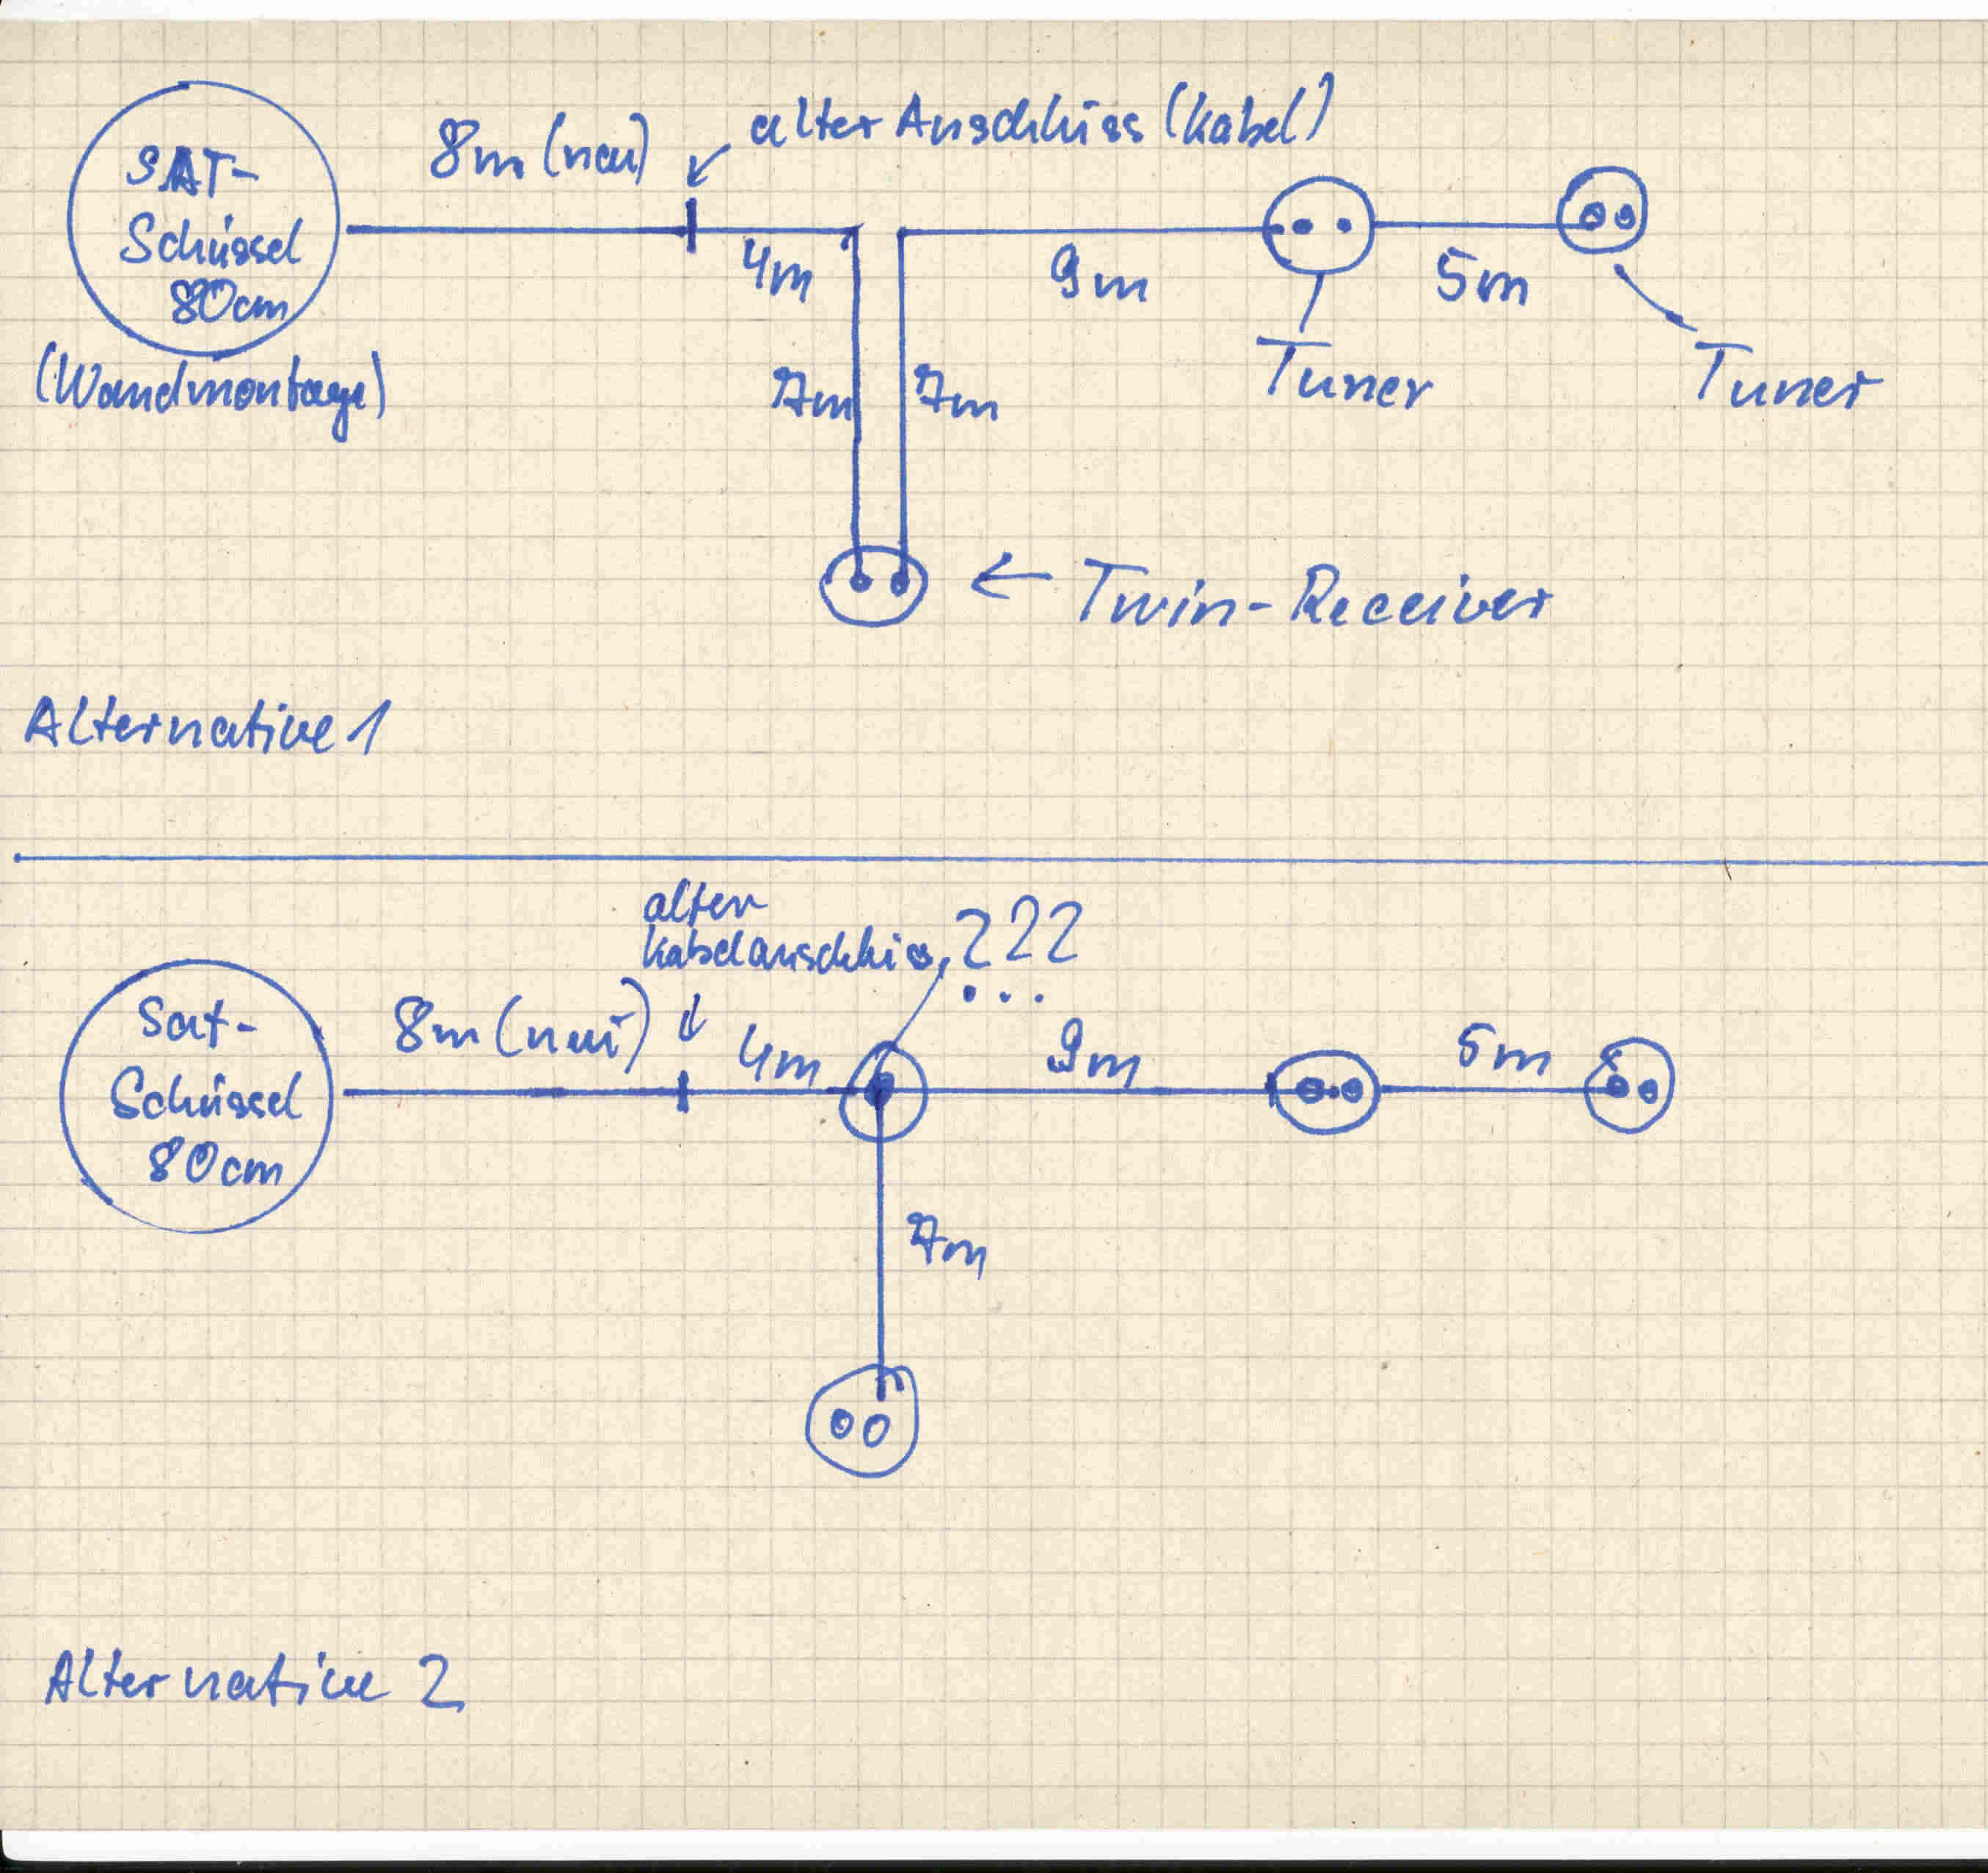 SAT-
Schüssel
80cm
(Wandmontage)
8m (neu)
alter Anschluss (Kabel)
4m
9m
5m
7m
7m
Tuner
Tuner
← Twin-Receiver
Alternative 1
alter
Kabelanschluss
???
Sat-
Schüssel
80cm
8m (neu)
4m
9m
5m
7m
Alternative 2